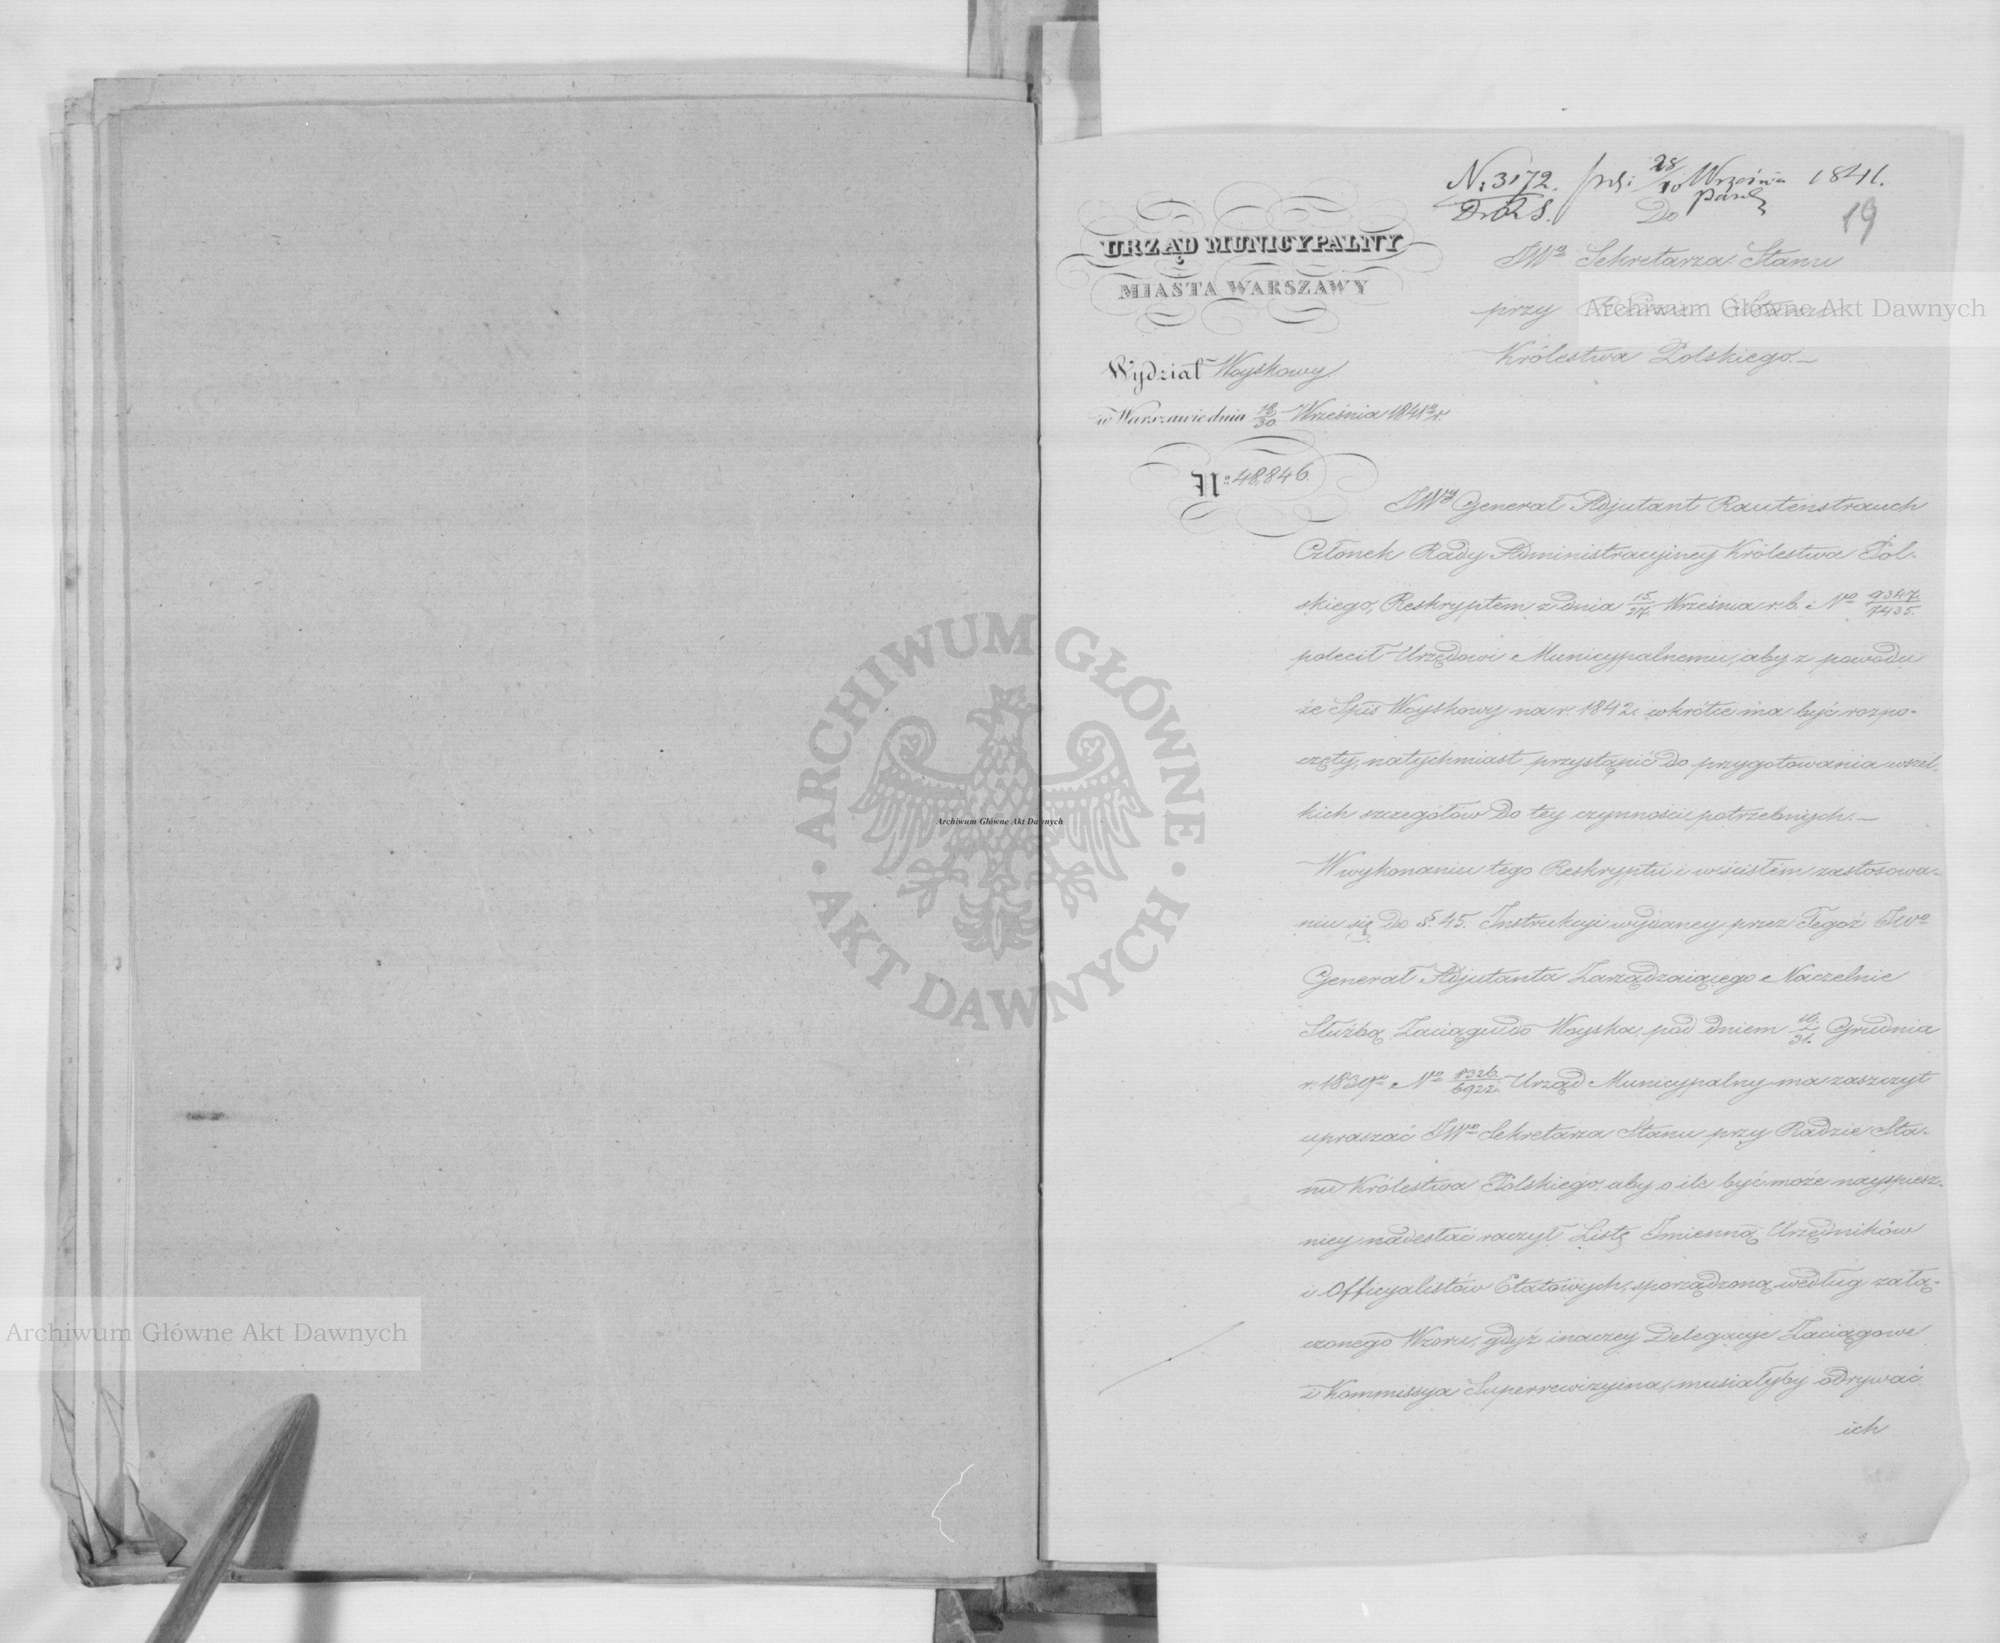 N: 3172.
D. R. S.
28/10 Września 1841.
Do
19
URZĄD MUNICYPALNY
MIASTA WARSZAWY
JWo Sekretarza Stanu
przy Radzie Stanu
Królestwa Polskiego.—
Wydział Woyskowy
w Warszawie dnia 18/30 Września 1841 r.
No. 48,846.
JWy Generał Adjutant Rautenstrauch
Członek Rady Administracyjney Królestwa Pol-
skiego, Reskryptem z dnia 15/27 Września r.b. No 9347/7435.
polecił Urzędowi Municypalnemu, aby z powodu
że Spis Woyskowy na r. 1842. wkrótce ma być rozpo-
częty, natychmiast przystąpić do przygotowania wszel-
kich szczegółów do tey czynności potrzebnych.—
W wykonaniu tego Reskryptu i w ścisłem zastosowa-
niu się do §. 45. Instrukcji wydaney przez Tegoż JWo
Generał Adjutanta Zarządzaiącego Naczelnie
Służbą Zaciągu do Woyska pod dniem 19/31. Grudnia
r. 1839o No 8326/6922. Urząd Municypalny ma zaszczyt
upraszać JWo Sekretarza Stanu przy Radzie Sta-
nu Królestwa Polskiego, aby o ile być może nayspiesz-
niey nadesłać raczył Listę Imienną Urzędników
i Officyalistów Etatowych, sporządzoną według załą-
czonego Wzoru, gdyż inaczey Delegacye Zaciągowe
i Kommissya Superrewizyina, musiałyby odrywać
ich
Archiwum Główne Akt Dawnych
ARCHIWUM GŁÓWNE · AKT DAWNYCH ·
Archiwum Główne Akt Dawnych
Archiwum Główne Akt Dawnych